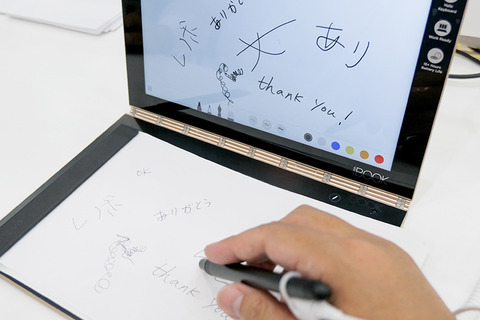 ありがとう
レノボ
あり
thank you!
Halo
Keyboard
Work Ready
Battery Life
YOGA BOOK
OK
レノボ
ありがとう
thank you